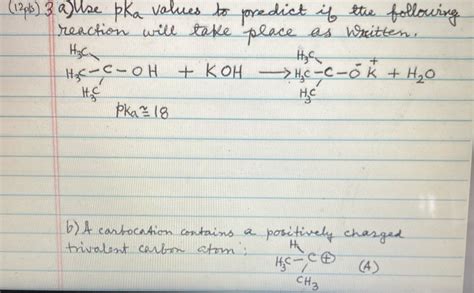 (12pts) 3 a) Use pKa values to predict if the following
reaction will take place as written.
H₃C H₃C
H₃C-C-OH + KOH → H₃C-C-O⁻ K⁺ + H₂O
H₃C H₃C
pKa ≅ 18
b) A carbocation contains a positively charged
trivalent carbon atom:
H
H₃C-C⊕ (A)
CH₃